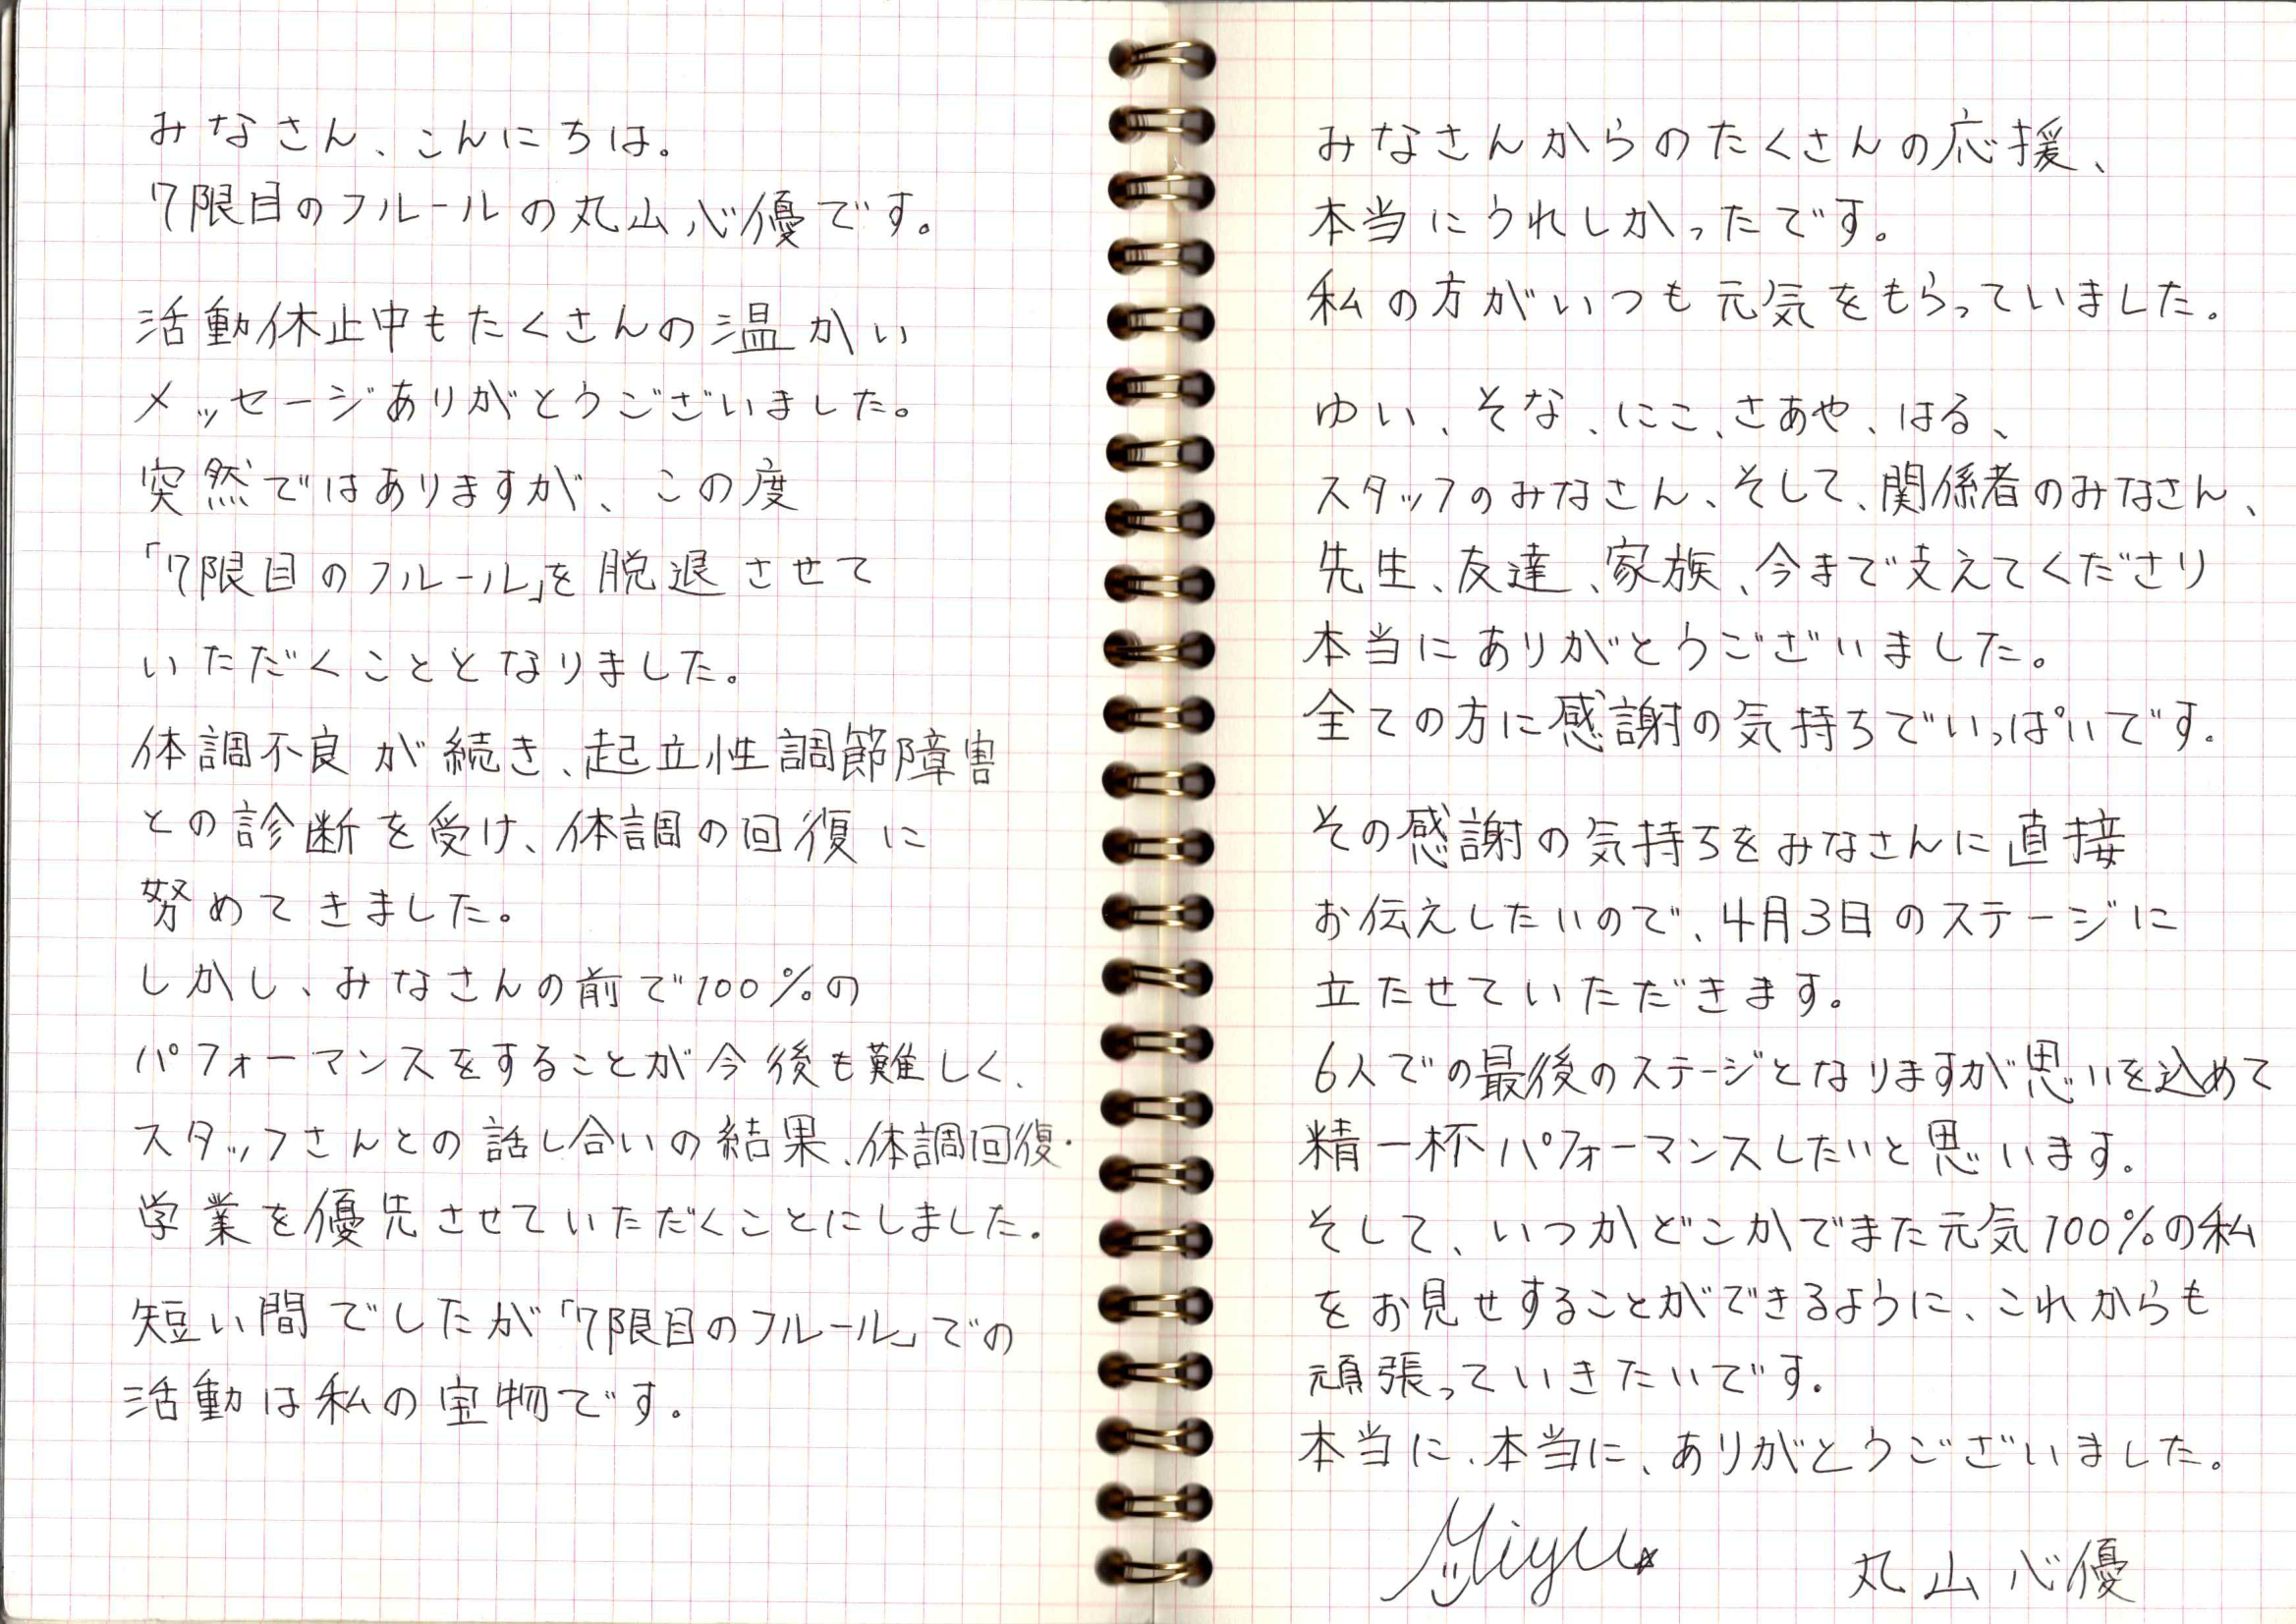 みなさん、こんにちは。
7限目のフルールの丸山心優です。
活動休止中もたくさんの温かい
メッセージありがとうございました。
突然ではありますが、この度
「7限目のフルール」を脱退させて
いただくこととなりました。
体調不良が続き、起立性調節障害
との診断を受け、体調の回復に
努めてきました。
しかし、みなさんの前で100%の
パフォーマンスをすることが今後も難しく、
スタッフさんとの話し合いの結果、体調回復・
学業を優先させていただくことにしました。
短い間でしたが「7限目のフルール」での
活動は私の宝物です。
みなさんからのたくさんの応援、
本当にうれしかったです。
私の方がいつも元気をもらっていました。
ゆい、そな、にこ、さあや、はる、
スタッフのみなさん、そして、関係者のみなさん、
先生、友達、家族、今まで支えてくださり
本当にありがとうございました。
全ての方に感謝の気持ちでいっぱいです。
その感謝の気持ちをみなさんに直接
お伝えしたいので、4月3日のステージに
立たせていただきます。
6人での最後のステージとなりますが思いを込めて
精一杯パフォーマンスしたいと思います。
そして、いつかどこかでまた元気100%の私
をお見せすることができるように、これからも
頑張っていきたいです。
本当に、本当に、ありがとうございました。
Miyu 丸山心優